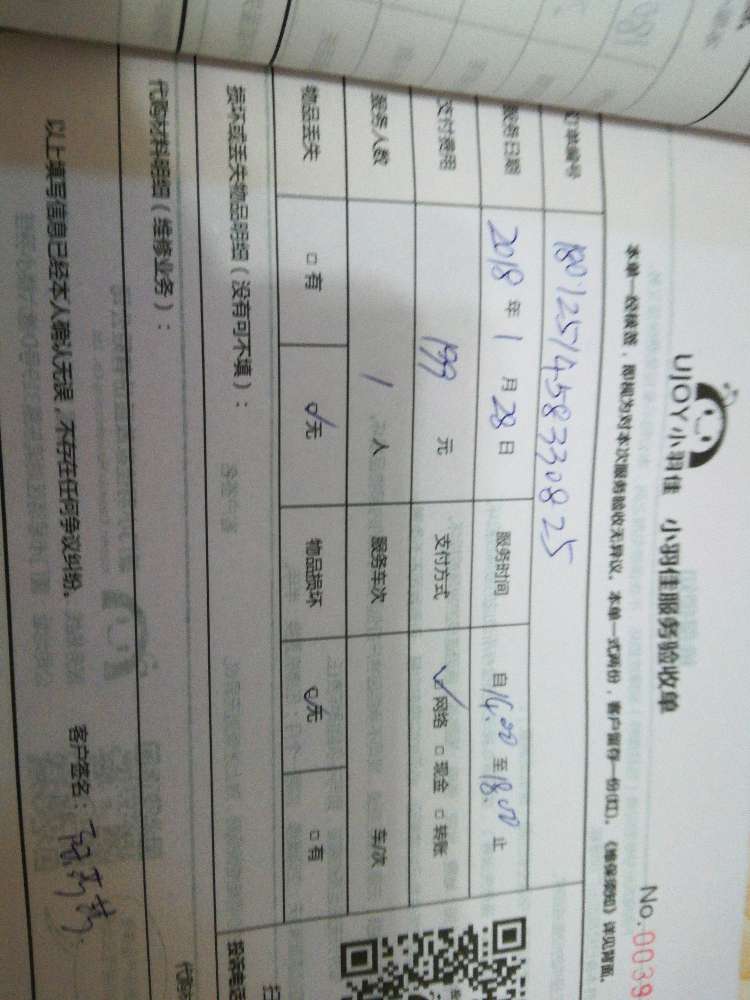 UJOY小羽佳 小羽佳服务验收单
No.0039
本单一经核签，即视为对本次服务验收无异议。本单一式两份，客户留存一份(红)。《维保须知》详见背面。
订单编号 1801251458330825
服务日期 2018年1月28日 服务时间 自14:00至18:00止
支付费用 199元 支付方式 网络 □现金 □转账
服务人数 1人 服务车次 车/次
物品丢失 □有 无 物品损坏 无 □有
损坏或丢失物品明细（没有可不填）：
代购材料明细（维修业务）：
以上填写信息已经本人确认无误，不存在任何争议纠纷。 客户签名：